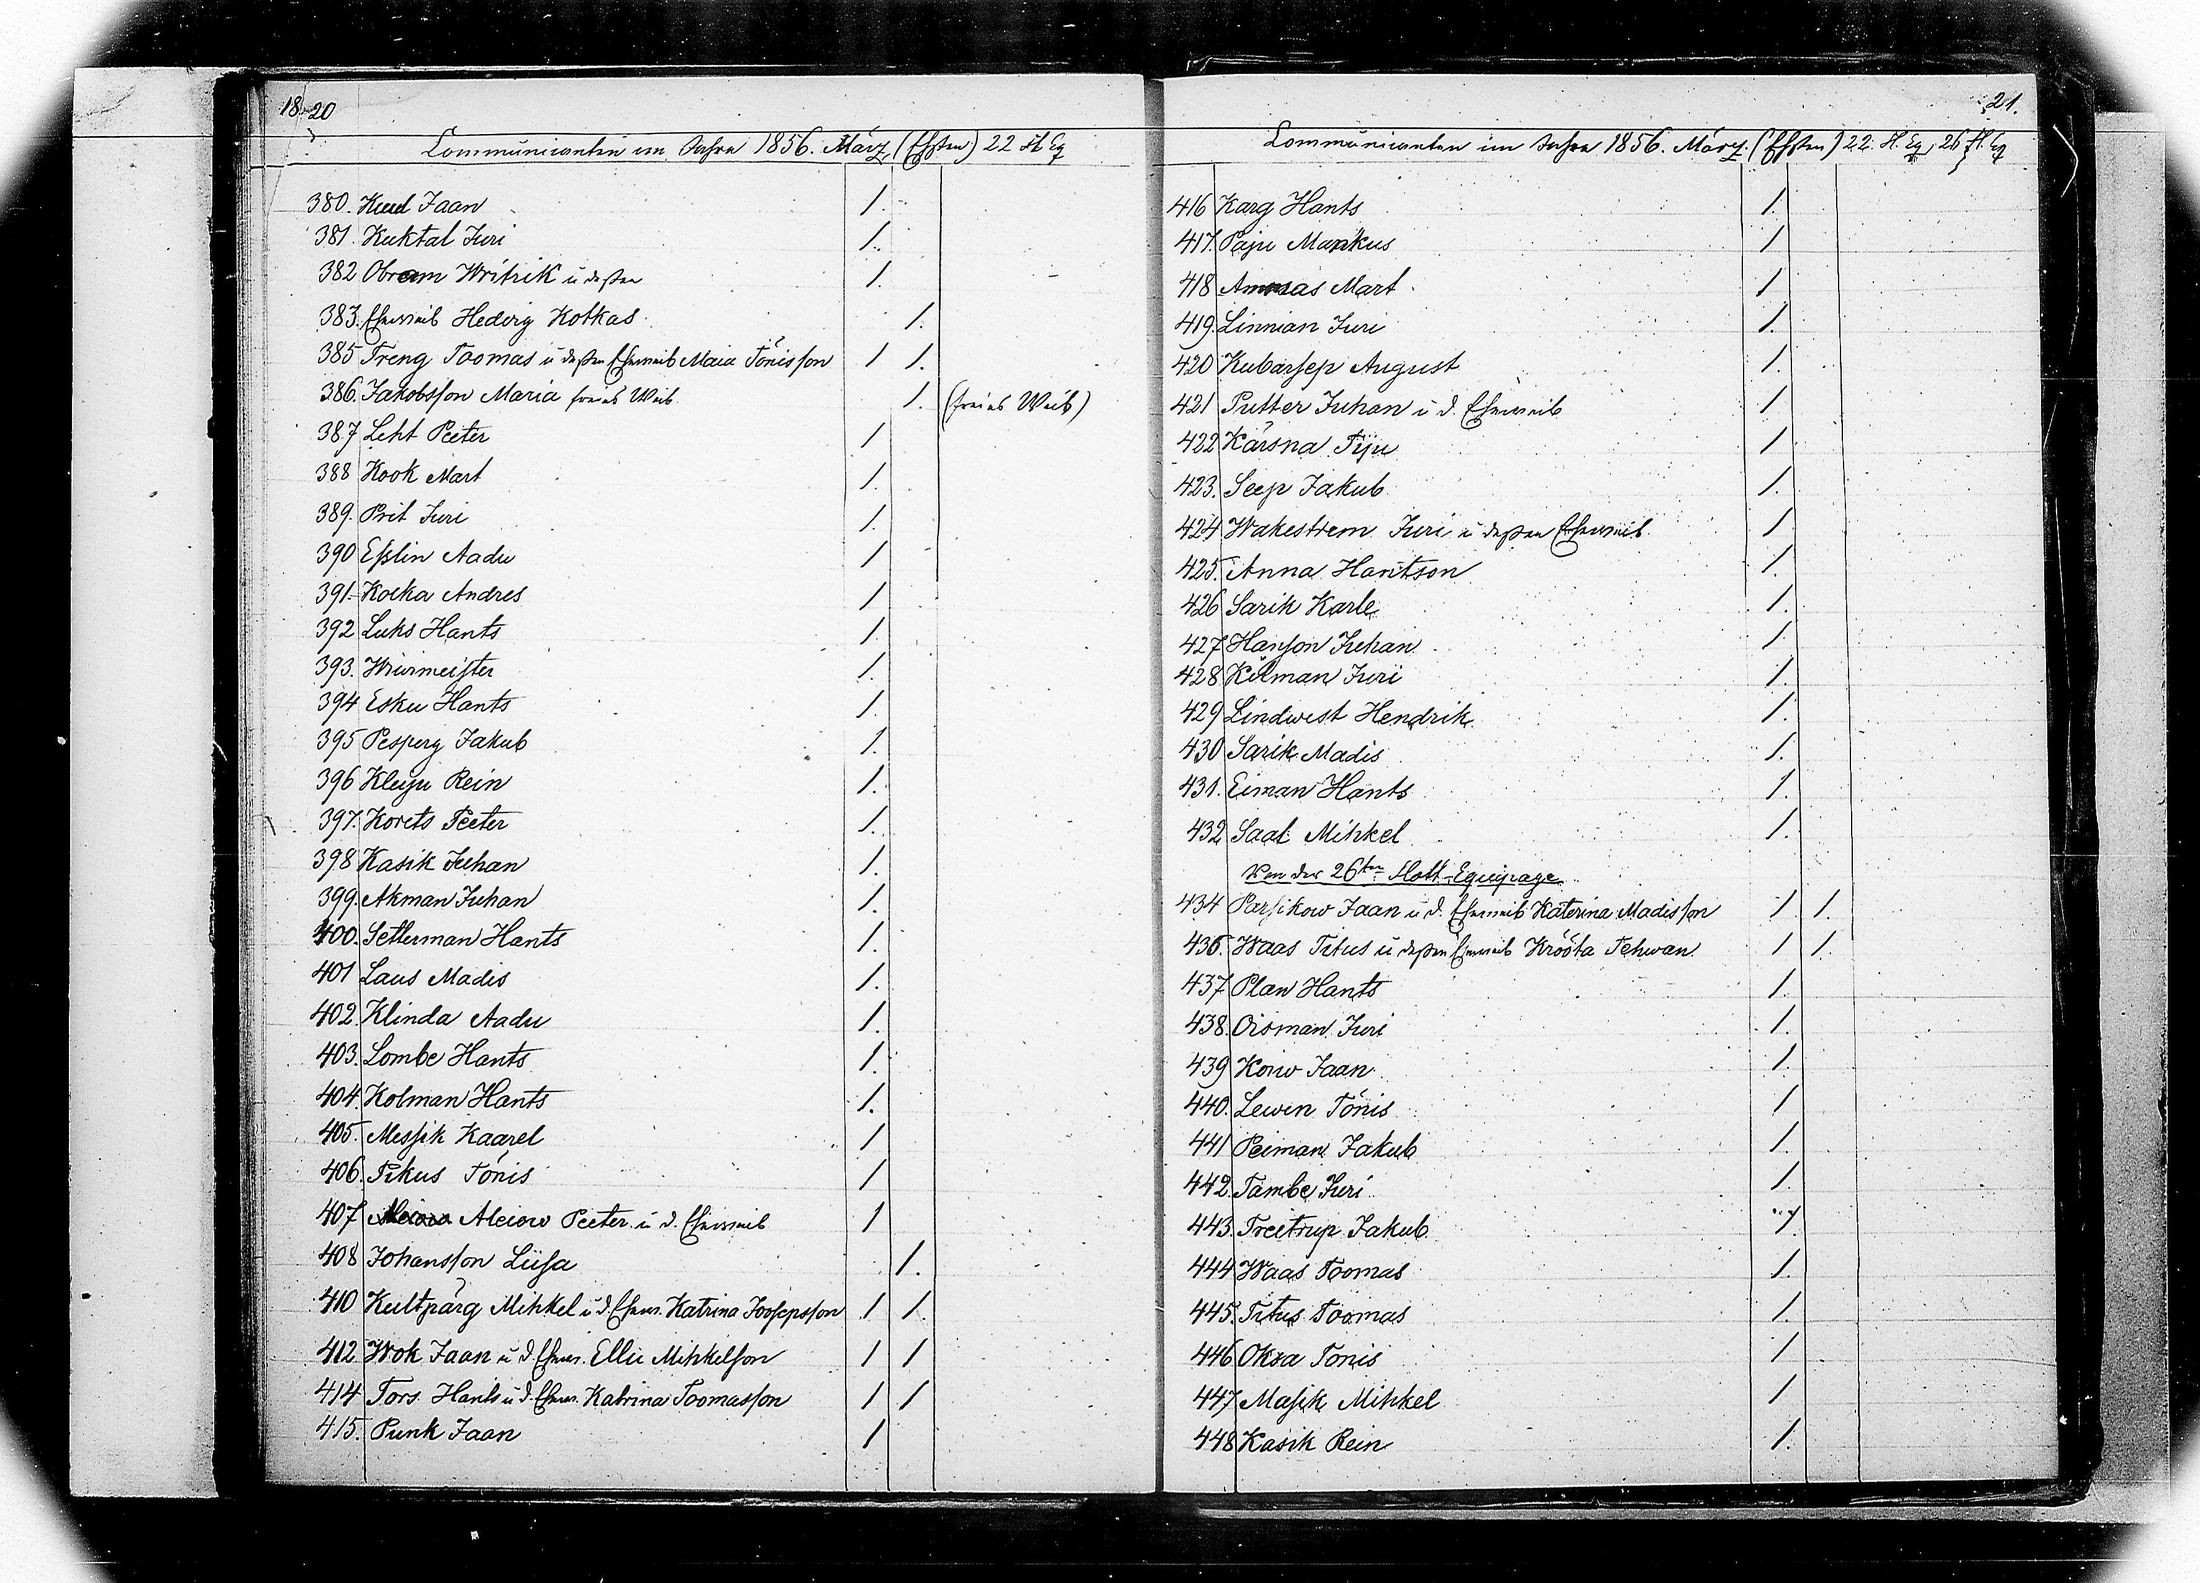 18 20
Communicanten im Jahre 1856. März (Ehsten) 22 fl Eq
380. Kuul Jaan 1.
381. Kuktal Juri 1.
382 Obram Writrik u deßen 1.
383. Eheweib Hedwig Kotkas 1.
385 Treng Toomas u deßen Eheweib Maia Tönisson 1 1.
386. Jakobsson Maria freies Weib 1. (freies Weib)
387 Leht Peeter 1
388 Kook Mart 1.
389. Prit Juri 1.
390 Esslin Aadu 1
391. Kocka Andres 1
392 Luks Hants 1
393. Wiirmeister 1.
394 Esku Hants 1.
395 Pesperg Jakub 1.
396 Kleyu Rein 1.
397. Korets Peeter 1.
398 Kasik Juhan 1.
399. Akman Juhan 1.
400. Setlerman Hants 1.
401 Laus Madis 1.
402. Klinda Aadu 1.
403. Lombe Hants 1.
404. Kolman Hants 1.
405. Messik Kaarel 1
406. Tikus Tönis 1
407 Aleiow Peeter u d. Eheweib 1
408 Johansson Liisa 1.
410 Kultpärg Mihkel u d. Ehew. Katrina Joosepsson 1 1.
412 Wok Jaan u d. Ehew. Ellie Mihkelson 1 1
414 Tors Hants u d. Ehew. Katrina Toomasson 1 1
415. Punk Jaan 1
21.
Communicanten im Jahre 1856. März. (Ehsten) 22. fl. Eq, 26 fl. Eq
416 Karg Hants 1.
417 Paju Markus 1
418 Ammas Mart 1
419. Linnian Juri 1.
420 Kubarsep August 1.
421 Putter Juhan u d. Eheweib 1
422 Kärsna Tiju 1
423. Seep Jakub 1.
424 Wakestrem Juri u deßen Eheweib 1
425. Anna Hantson 1.
426 Sarik Karle 1.
427 Hanson Juhan 1
428 Kölman Juri 1.
429 Lindwest Hendrik 1.
430 Sarik Madis 1.
431. Eiman Hants 1.
432 Saal Mihkel 1.
Von der 26ten Flott-Equipage
434 Parsikow Jaan u d. Eheweib Katerina Madisson 1 1.
436. Waas Titus u. deßen Eheweib Krööta Tehwan 1 1.
437 Plan Hants 1.
438. Oisman Juri 1.
439 Koiw Jaan 1.
440. Lewen Tönis 1
441 Peiman Jakub 1.
442 Tambe Juri 1.
443. Treitrup Jakub 1.
444 Waas Toomas 1.
445. Titus Toomas 1.
446 Oksa Tonis 1
447 Masik Mihkel 1
448 Kasik Rein 1.